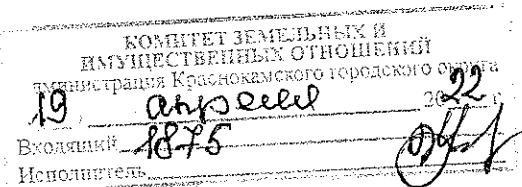 КОМИТЕТ ЗЕМЕЛЬНЫХ И
ИМУЩЕСТВЕННЫХ ОТНОШЕНИЙ
администрация Краснокамского городского округа
19 апреля 2022 г.
Входящий 1875
Исполнитель